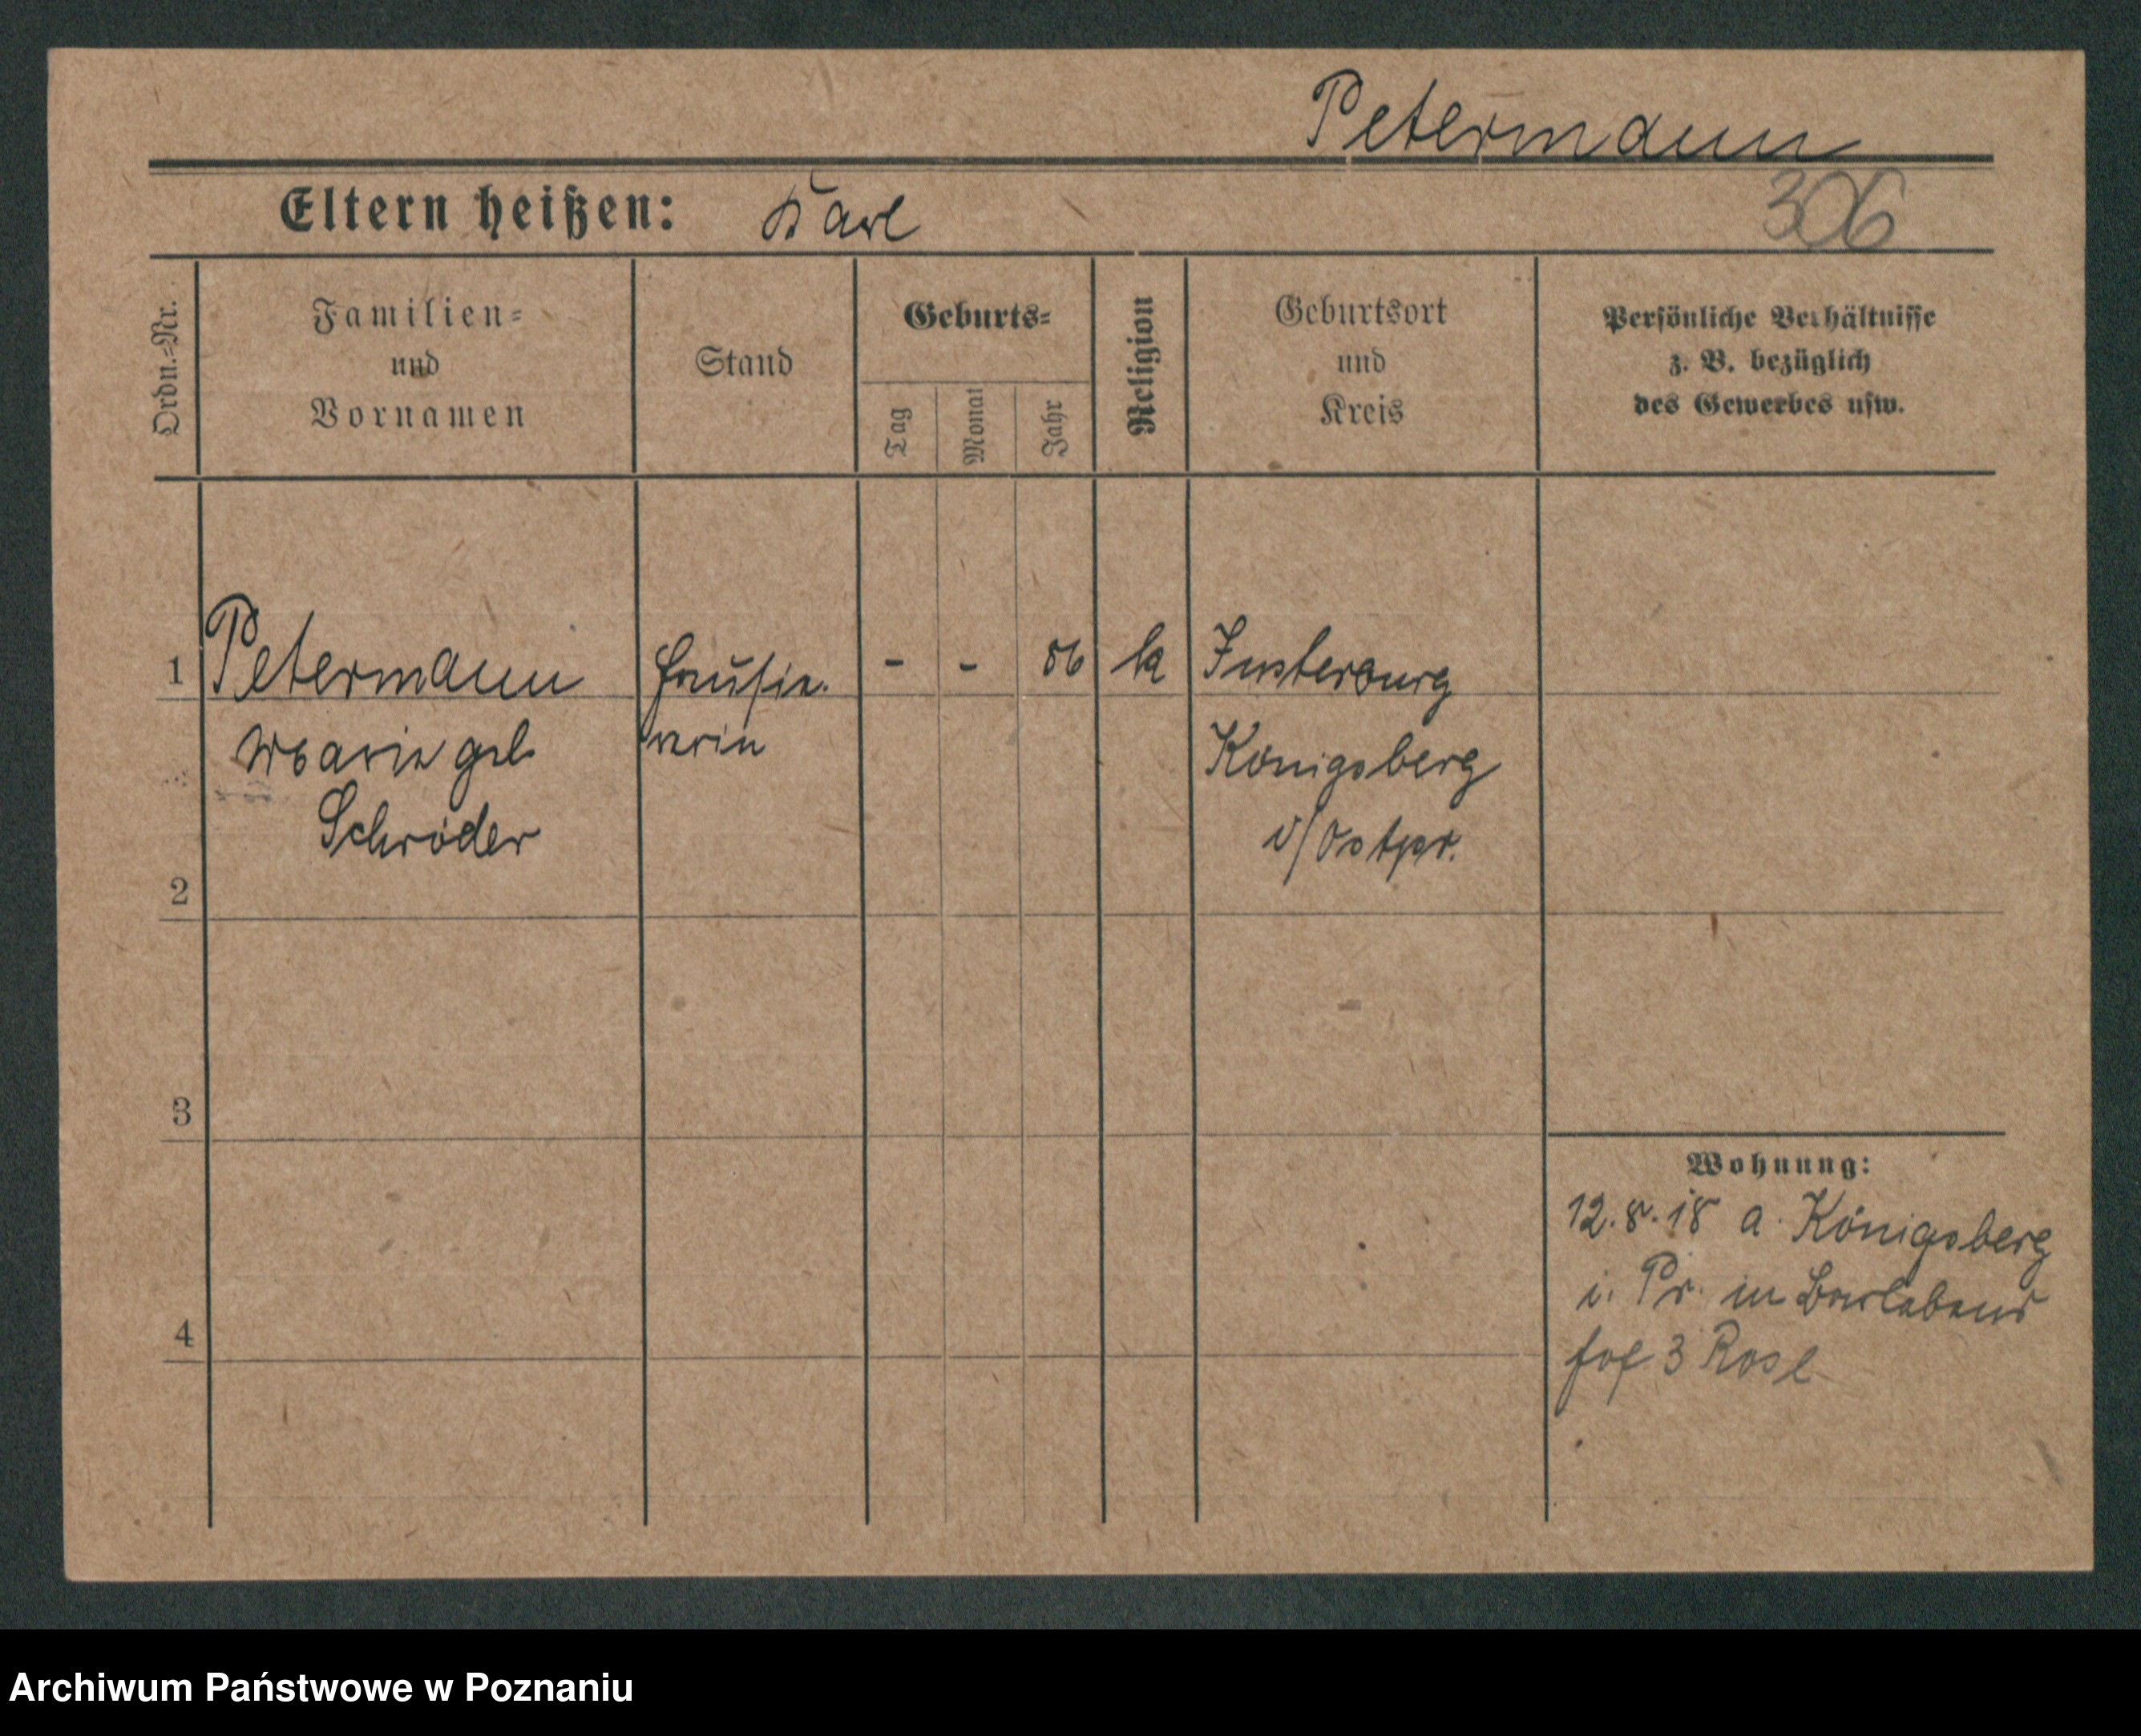 Petermann
306
Eltern heißen: Karl
Ordn.=Nr.
Familien=
und
Vornamen
Stand
Geburts=
Tag
Monat
Jahr
Religion
Geburtsort
und
Kreis
Persönliche Verhältnisse
z. B. bezüglich
des Gewerbes usw.
1 Petermann Hausie- - - 86 ka Insterburg
Marie geb rerin Königsberg
Schröder i/Ostpr.
2
3
4
Wohnung:
12.8.18 a. Königsberg
i. Pr. in
hof 3
Archiwum Państwowe w Poznaniu